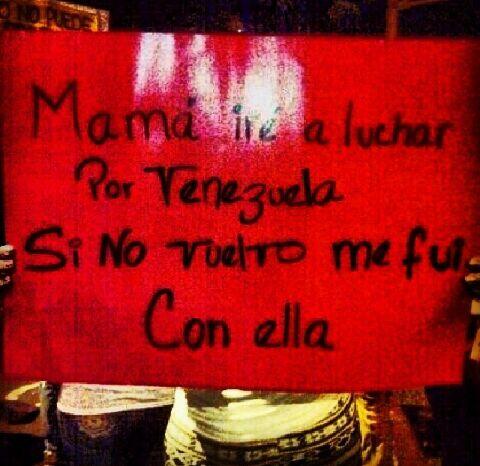 O NO PUEDE
Mamá iré a luchar
Por Venezuela
Si No vuelvo me fui
Con ella